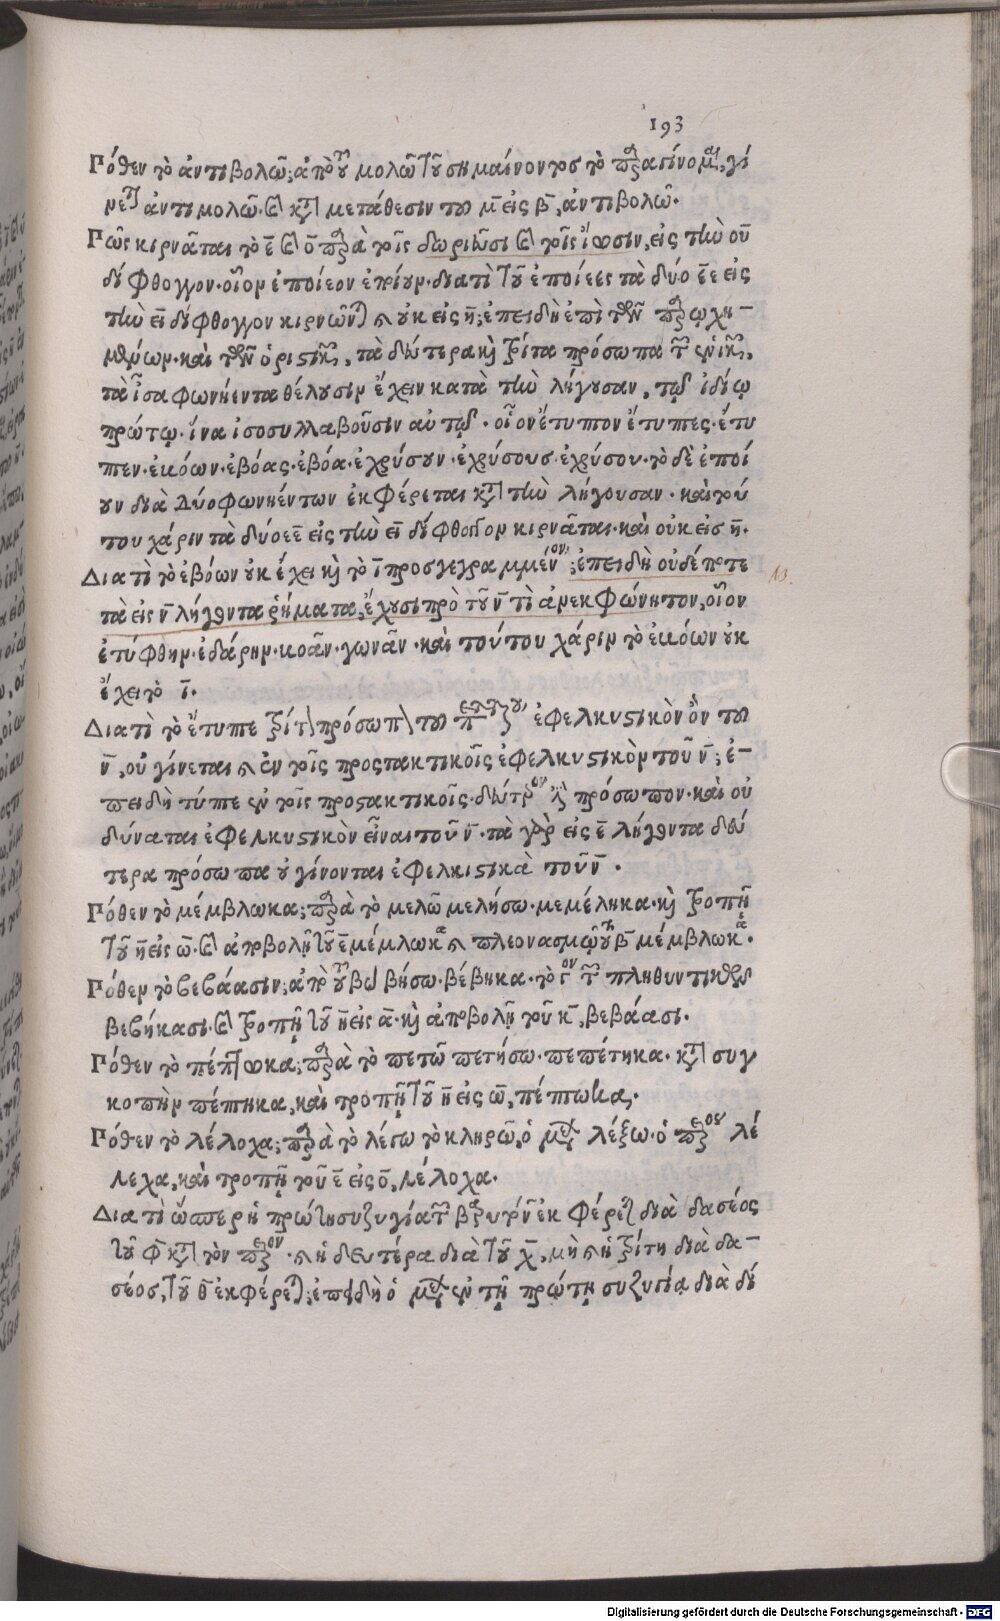 193
Πόθεν τὸ ἀντιβολῶ; ἀπὸ τοῦ μολῶ τοῦ σημαίνοντος τὸ παραγίνομαι, γί
νεται ἀντιμολῶ. καὶ κατὰ μετάθεσιν τοῦ μ̄ εἰς β̄, ἀντιβολῶ.
Πῶς κιρνᾶται τὸ ε̄ καὶ ο̄ παρὰ τοῖς δωριεῦσι καὶ τοῖς ἴωσιν, εἰς τὴν ου
δίφθογγον. οἷον ἐποίεον ἐποίουν. διατί τοῦ ἐποίεες τὰ δύο ε̄ε εἰς
τὴν ει δίφθογγον κιρνῶνται καὶ οὐκ εἰς η̄; ἐπειδὴ ἐπὶ τῶν παρῳχη-
μένων. καὶ τῶν ὁριστικῶν, τὰ δεύτερα καὶ τρίτα πρόσωπα τῶν ἑνικῶν,
τὰ ἶσα φωνήεντα θέλουσιν ἔχειν κατὰ τὴν λήγουσαν, τῷ ἰδίῳ
πρώτῳ. ἵνα ἰσοσυλλαβοῦσιν αὐτῷ. οἷον ἔτυπτον ἔτυπτες. ἔτυ
πτεν. ἐβόων. ἐβόας. ἐβόα. ἐχρύσουν. ἐχρύσους. ἐχρύσου. τὸ δὲ ἐποί
ουν διὰ δύο φωνηέντων ἐκφέρεται κατὰ τὴν λήγουσαν. καὶ τού
του χάριν τὰ δύο εε εἰς τὴν ει δίφθογγον κιρνᾶται. καὶ οὐκ εἰς η̄.
Διατί τὸ ἐβόων οὐκ ἔχει καὶ τὸ ῑ προσγεγραμμένον; ἐπειδὴ οὐδέποτε
τὰ εἰς ν̄ λήγοντα ῥήματα, ἔχουσι πρὸ τοῦ ν̄ τὶ ἀνεκφώνητον, οἷον
ἐτύφθην. ἐδάρην. βοᾶν. γωνᾶν. καὶ τούτου χάριν τὸ ἐβόων οὐκ
ἔχει τὸ ῑ.
Διατί τὸ ἔτυπτε τρίτον πρόσωπον τοῦ ἐφελκυστικὸν ὂν τοῦ
ν̄, οὐ γίνεται καὶ ἐν τοῖς προστακτικοῖς ἐφελκυστικὸν τοῦ ν̄; ἐ-
πειδὴ τύπτε ἐν τοῖς προστακτικοῖς. δεύτερον ἐστὶ πρόσωπον. καὶ οὐ
δύναται ἐφελκυστικὸν εἶναι τοῦ ν̄. τὰ γὰρ εἰς ε̄ λήγοντα δεύ
τερα πρόσωπα οὐ γίνονται ἐφελκιστικὰ τοῦ ν̄.
Πόθεν τὸ μέμβλωκα; παρὰ τὸ μελῶ μελήσω. μεμέληκα. καὶ τροπῇ
τοῦ η̄ εἰς ω̄. καὶ ἀποβολῇ τοῦ ε̄ μέμλωκα καὶ πλεονασμῷ τοῦ β̄ μέμβλωκα.
Πόθεν τὸ βεβάασιν; ἀπὸ τοῦ βῶ βήσω. βέβηκα. τὸ γ̄ον τῶν πληθυντικῶν
βεβήκασι. καὶ τροπῇ τοῦ η̄ εἰς ᾱ. καὶ ἀποβολῇ τοῦ κ̄, βεβάασι.
Πόθεν τὸ πέπτωκα; παρὰ τὸ πετῶ πετήσω. πεπέτηκα. κατὰ συγ
κοπὴν πέπτηκα, καὶ τροπῇ τοῦ η̄ εἰς ω̄, πέπτωκα,.
Πόθεν τὸ λέλοχα; παρὰ τὸ λέγω τὸ κληρῶ, ὁ μέλλων λέξω. ὁ παρακείμενος λέ
λεχα, καὶ τροπῇ τοῦ ε̄ εἰς ο̄, λέλοχα.
Διατί ὥσπερ ἡ πρώτη συζυγία τῶν βαρυτόνων ἐκφέρεται διὰ δασέος
τοῦ φ̄ κατὰ τὸν παρακείμενον. καὶ ἡ δευτέρα διὰ τοῦ χ̄, μὴ καὶ ἡ τρίτη διὰ δα-
σέος, τοῦ θ̄ ἐκφέρεται; ἐπειδὴ ὁ μέλλων ἐν τῇ πρώτῃ συζυγίᾳ διὰ δι
Digitalisierung gefördert durch die Deutsche Forschungsgemeinschaft - DFG